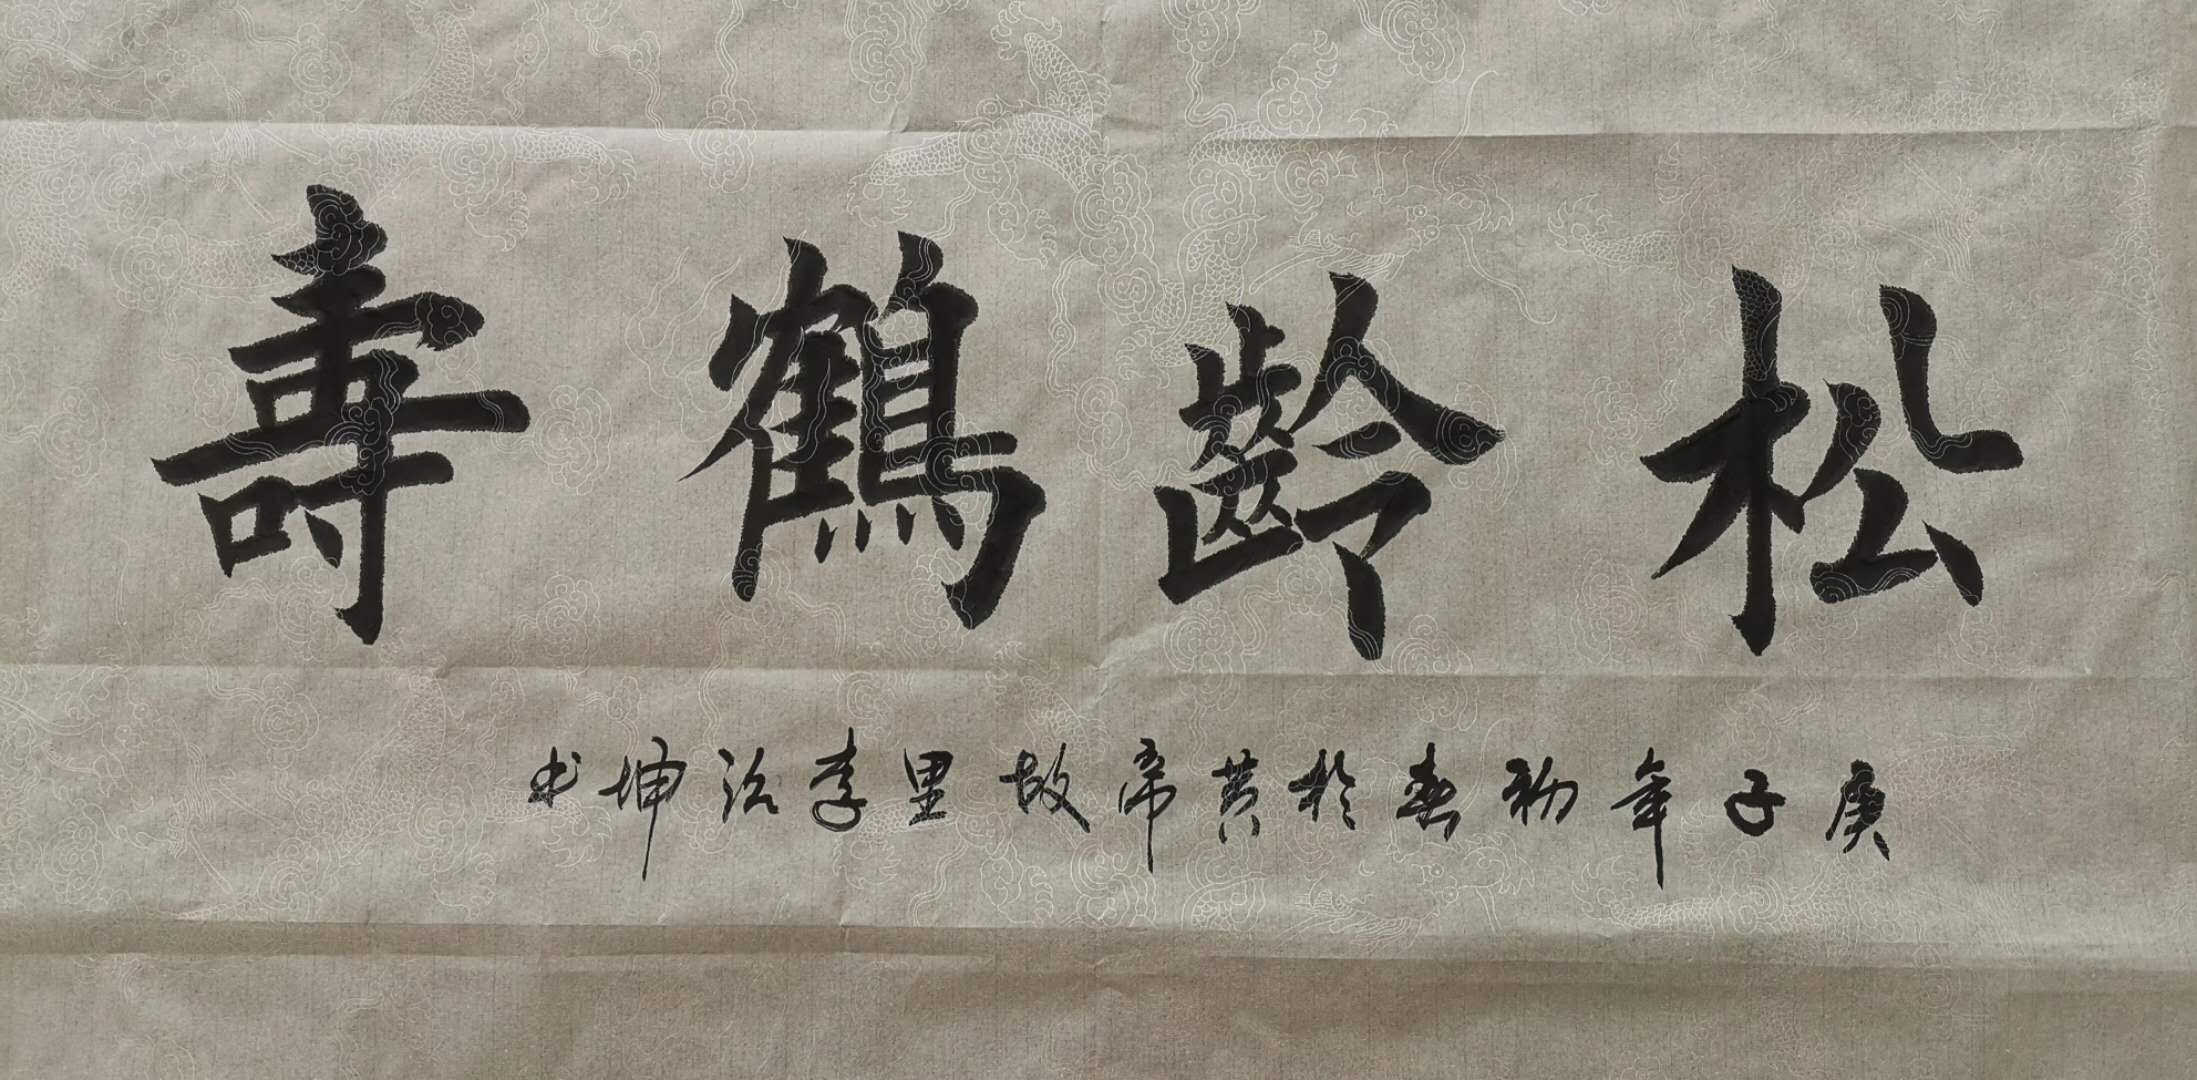 松齡鶴壽
庚子年初春於黄帝故里李治坤书